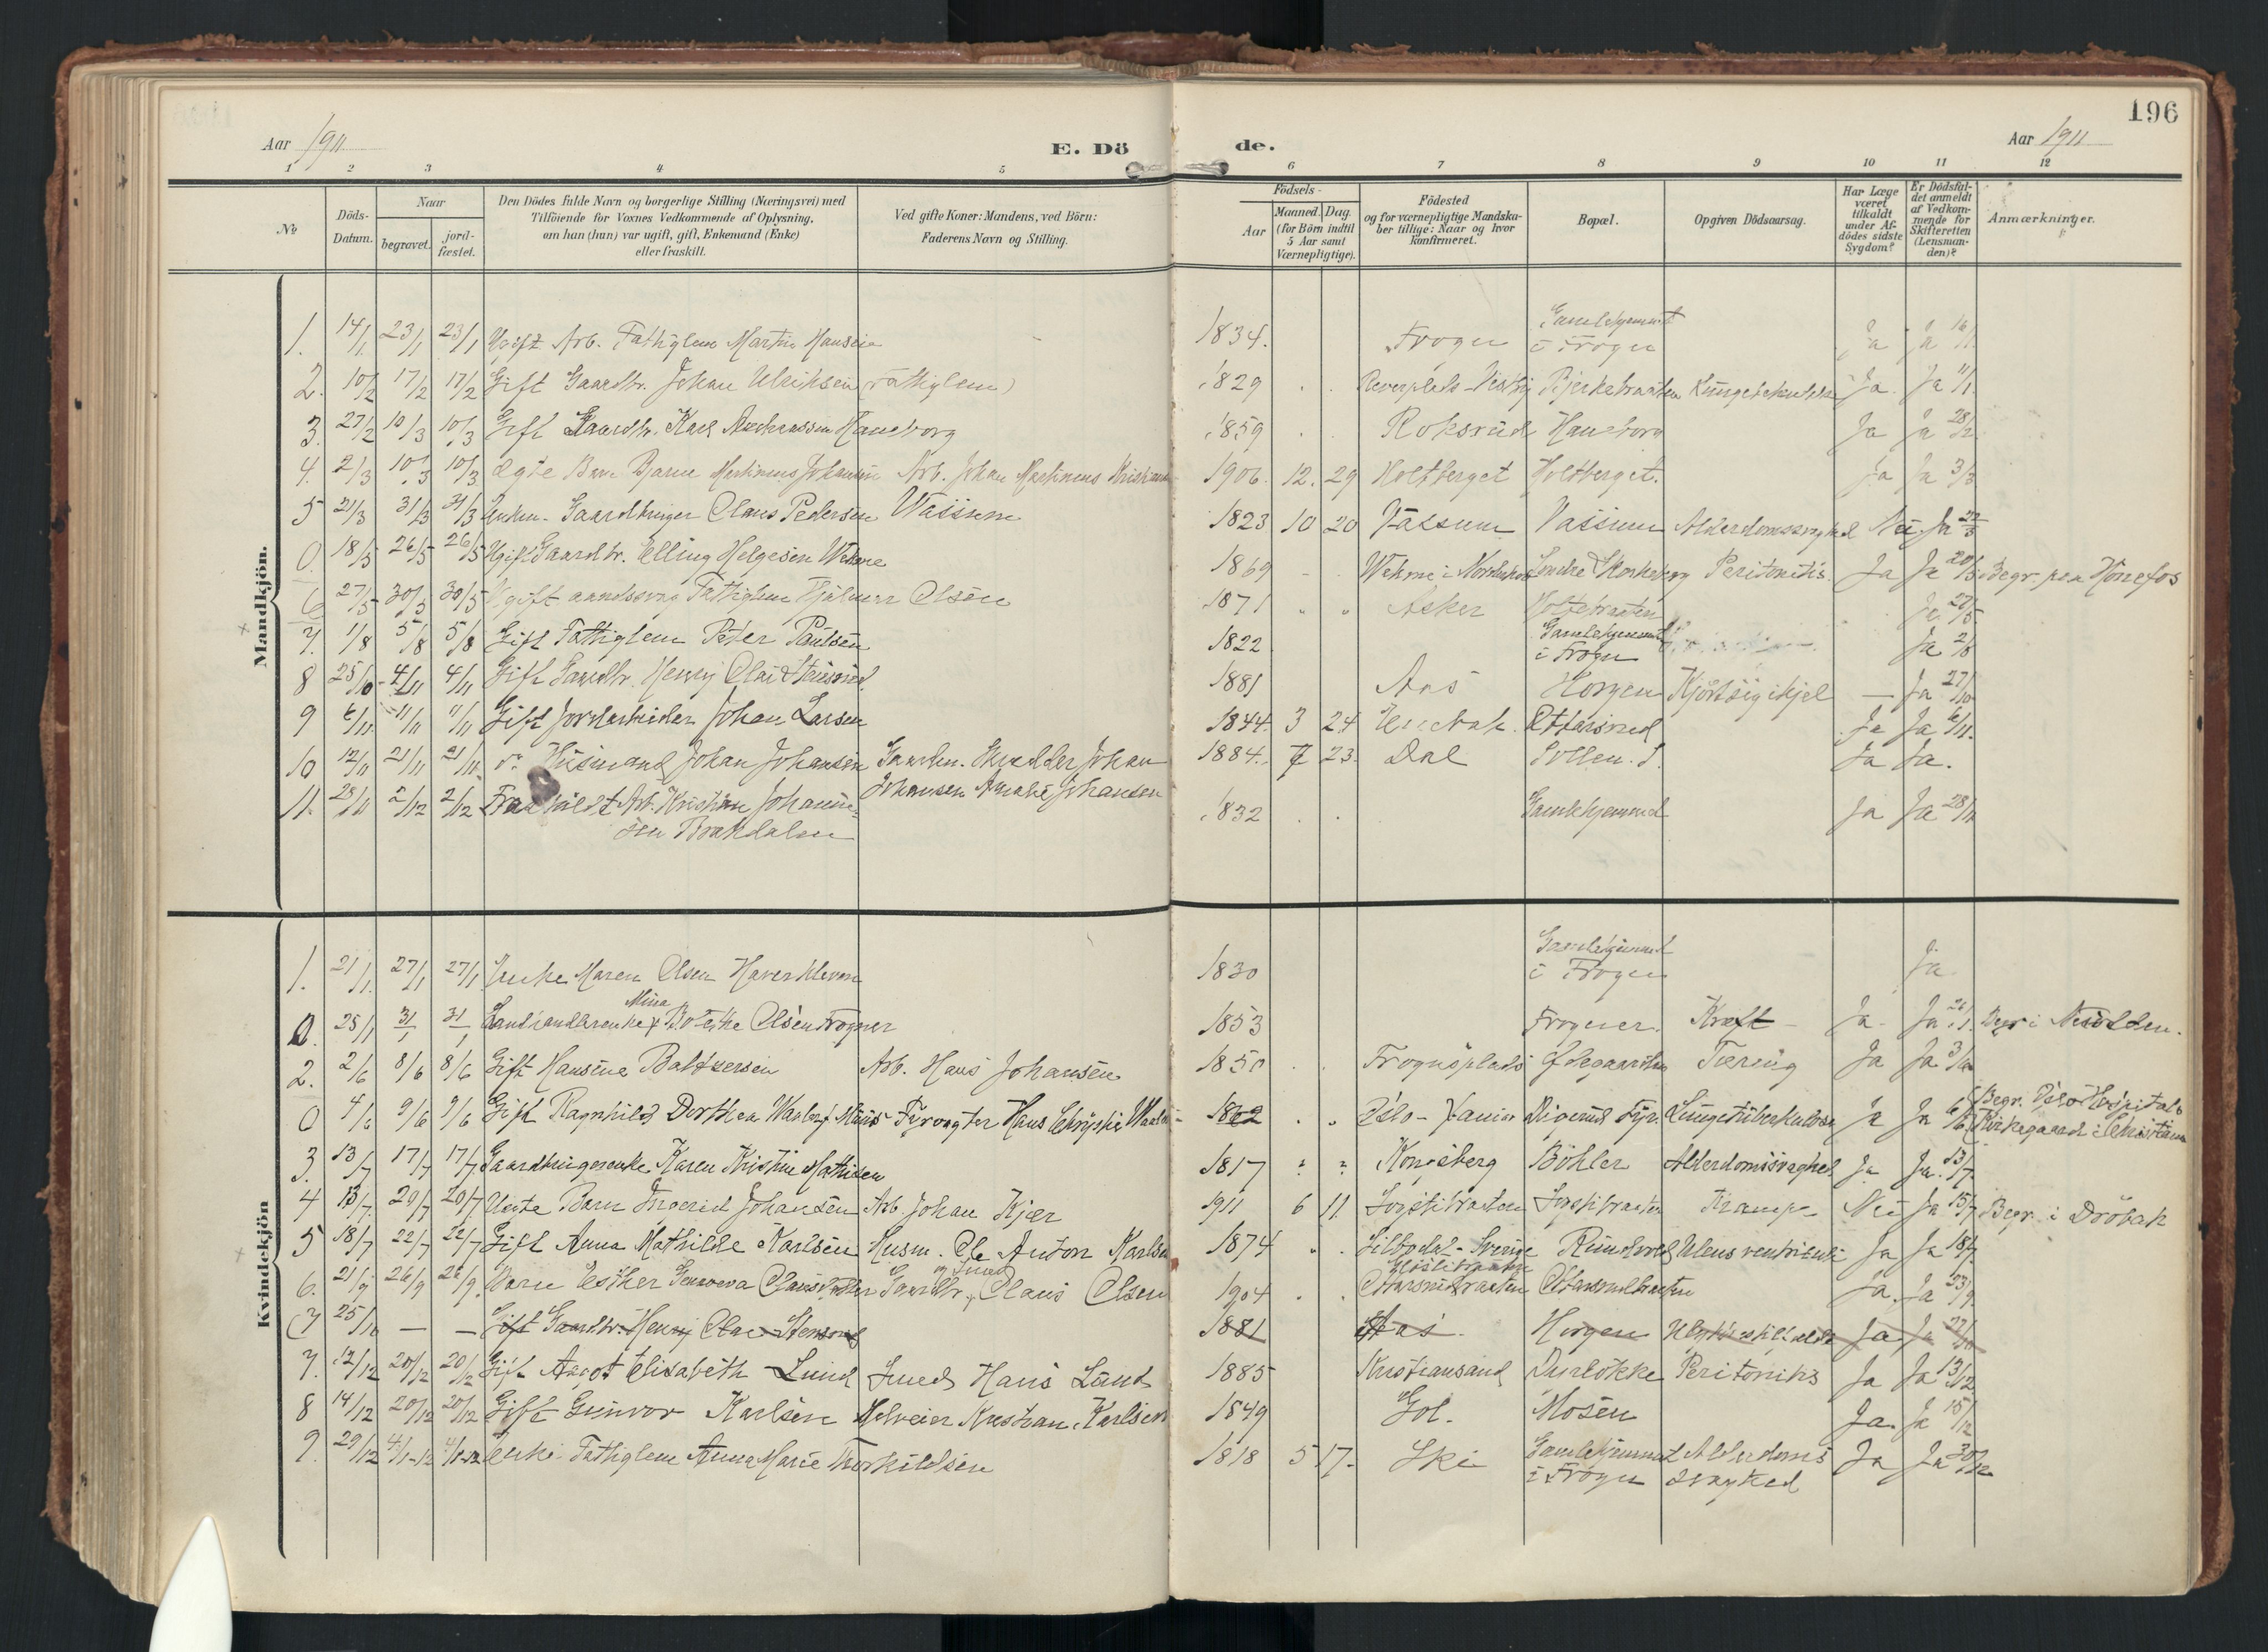 196
Aar 1911
E. Dö
de.
Aar 1911
1 2 3 4 5 6 7 8 9 10 11 12
No
Döds-Datum.
Naar
begravet.
jord-fæstet.
Den Dödes fulde Navn og borgerlige Stilling (Næringsvei) med
Tilföiende for Voxnes Vedkommende af Oplysning,
om han (hun) var ugift, gift, Enkemand (Enke)
eller fraskilt.
Ved gifte Koner: Mandens, ved Börn:
Faderens Navn og Stilling.
Födsels-
Aar
Maaned. Dag.
(for Börn indtil
5 Aar samt
Værnepligtige).
Födested
og for værnepligtige Mandska-
ber tillige: Naar og hvor
konfirmeret.
Bopæl.
Opgiven Dödsaarsag.
Har Læge
været
tilkaldt
under Af-
dödes sidste
Sygdom?
Er Dödsfal-
det anmeldt
af Vedkom-
mende for
Skifteretten
(Lensman-
den)?
Anmærkninger.
Mandkjön.
1. 14/1 23/1 23/1 Ugift Arb. Fattiglem Martin Hansen 1834. Frogn Gamlehjemmet i Frogn Ja Ja 16/1
2. 10/2 17/2 17/2 Gift Gaardbr. Johan Ulriksen (Fattiglem) 1829 Bjerkebraaten Ja. Ja 11/1
3. 27/2 10/3 10/3 Gift Gaardbr. Karl Andreassen Haneborg 1859 Roksrud Haneborg Ja Ja 28/2
4. 2/3 10/3 10/3 Ægte Barn Bjarne Martinius Johansen Arb. Johan Martinius 1906. 12. 29 Holtberget Holtberget. Ja Ja 3/3
5 21/3 31/3 31/3 Enkem. Gaardbruger Claus Pedersen Vassum 1823 10 20 Vassum Vassum Alderdomssvaghed Nei Ja 22/3
0. 18/5 26/5 26/5 Ugift Gaardbr. Elling Helgesen Wehme 1869 Wehme i Söndre Peritonitis. Ja Ja 20/5 Begr. paa Hönefos
6 27/5 30/5 30/5 Ugift aandssvag Fattiglem Hjalmar Olsen 1871 Asker Holtebraaten Ja 27/5
7. 1/8 5/8 5/8 Gift Fattiglem Peter Paulsen 1822 Gamlehjemmet i Frogn Ja 2/8
8 25/10 4/11 4/11 Gift Gaardbr. Henry Olai Stensrud. 1881 Aas Horgen — Ja 27/10
9 6/11 11/11 11/11 Gift Jordarbeider Johan Larsen 1844. 3 24 Ottarsrud Ja Ja 6/11.
10 12/11 21/11 21/11 Husmand Johan Johansen Johan Johansen 1884. 7 23. Dal Sollen. S. Ja Ja.
11. 28/11 2/12 2/12 Fraskildt Arb. Kristian Johannessen Brækdalen 1832 Gamlehjemmet Ja Ja 28/11
Kvindekjön
1. 21/1. 27/1 27/1 Enke Maren Olsen Haverkleven 1830 Gamlehjemmet i Frogn Ja.
0. 25/1 31/1 31/1 Landhandlerenke Mina Olsen Frogner 1853 Frogner. Kræft – Ja. Ja 26/1. Begr. i Nesodden.
2. 2/6 8/6 8/6 Gift Hansine Baltzersen Arb. Hans Johansen 1850 Frognsplads Ødegaarden Tæring Ja Ja 3/6
0 4/6 9/6 9/6 Gift Ragnhild Dorthea Fyrvogter Hans 1862 Digerud Fyr. Lungetuberkulose Ja Ja 6/6 Begr. Oslo Hospitals Kirkegaard i Christiania
3. 13/7 17/7 17/7 Gaardbrugerenke Karen Kristine Mathisen 1817 Kongsberg Böhler Alderdomssvaghed Ja Ja. 13/7.
4 13/7. 20/7 20/7 Uægte Barn Ingerid Johansen Arb. Johan Kjær 1911 6 11. Krampe Nei Ja 15/7 Begr. i Dröbak
5 18/7 22/7 22/7 Gift Anna Mathilde Karlsen Husm. Ole Anton Karlsen 1874 Silbodal – Sverige Ulcus ventriculi Ja Ja 18/7.
6. 21/9 26/9 26/9. Barn Esther Genoveva Gaardbr. og Smed Claus Olsen 1904 Ottarsrudbraaten Ottarsrudbraaten Ja. Ja 23/9.
7 25/10 — — Gift Gaardbr. Henry Olai Stensrud 1881 Aas. Horgen Ulykkestilfælde Ja Ja 27/10
7. 12/12 20/12 20/12 Gift Aagot Elisabeth Lund Smed Hans Lund 1885 Kristiansand Peritonitis Ja Ja 13/12
8 14/12 20/12 20/12 Gift Gunvor Karlsen Selveier Kristian Karlsen 1849 Gol. Mosen Ja. Ja 15/12
9. 29/12 4/1-12 4/1-12 Enke Fattiglem Anne Marie Thorkildsen 1818 5 17. Ski Gamlehjemmet i Frogn Alderdomssvaghed Ja Ja 30/12